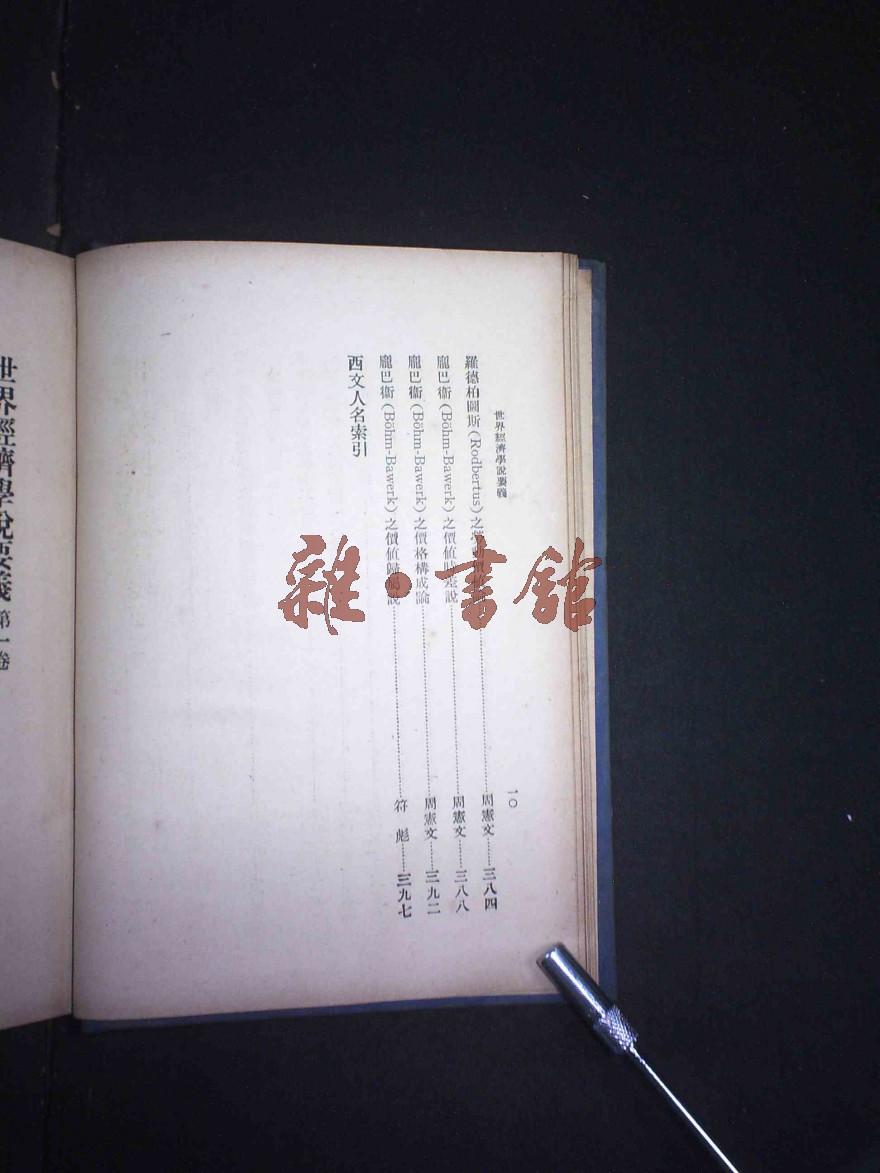 世界經濟學說要義
一〇
羅德柏圖斯(Rodbertus)之勞動價値說……周憲文……三八四
龐巴衞(Böhm-Bawerk)之價値時差說……周憲文……三八八
龐巴衞(Böhm-Bawerk)之價格構成論……周憲文……三九二
龐巴衞(Böhm-Bawerk)之價値歸屬說……符彪……三九七
西文人名索引
世界經濟學說要義 第一卷
雜·書館